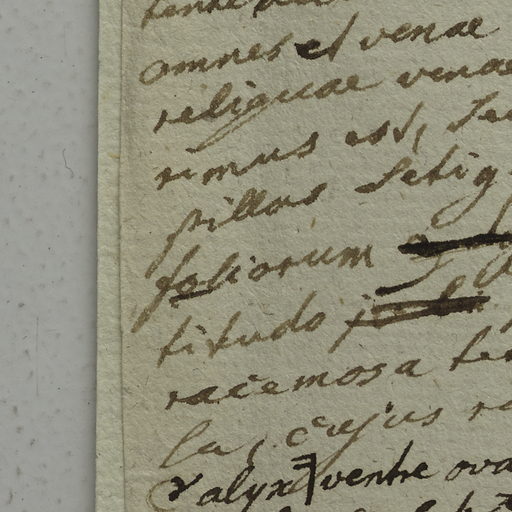 omnes et venae
reliquae venae
rimus est, se
pillos setig
foliorum
titudo
racemosa te
la, cujus ra
Calyx ventre ova